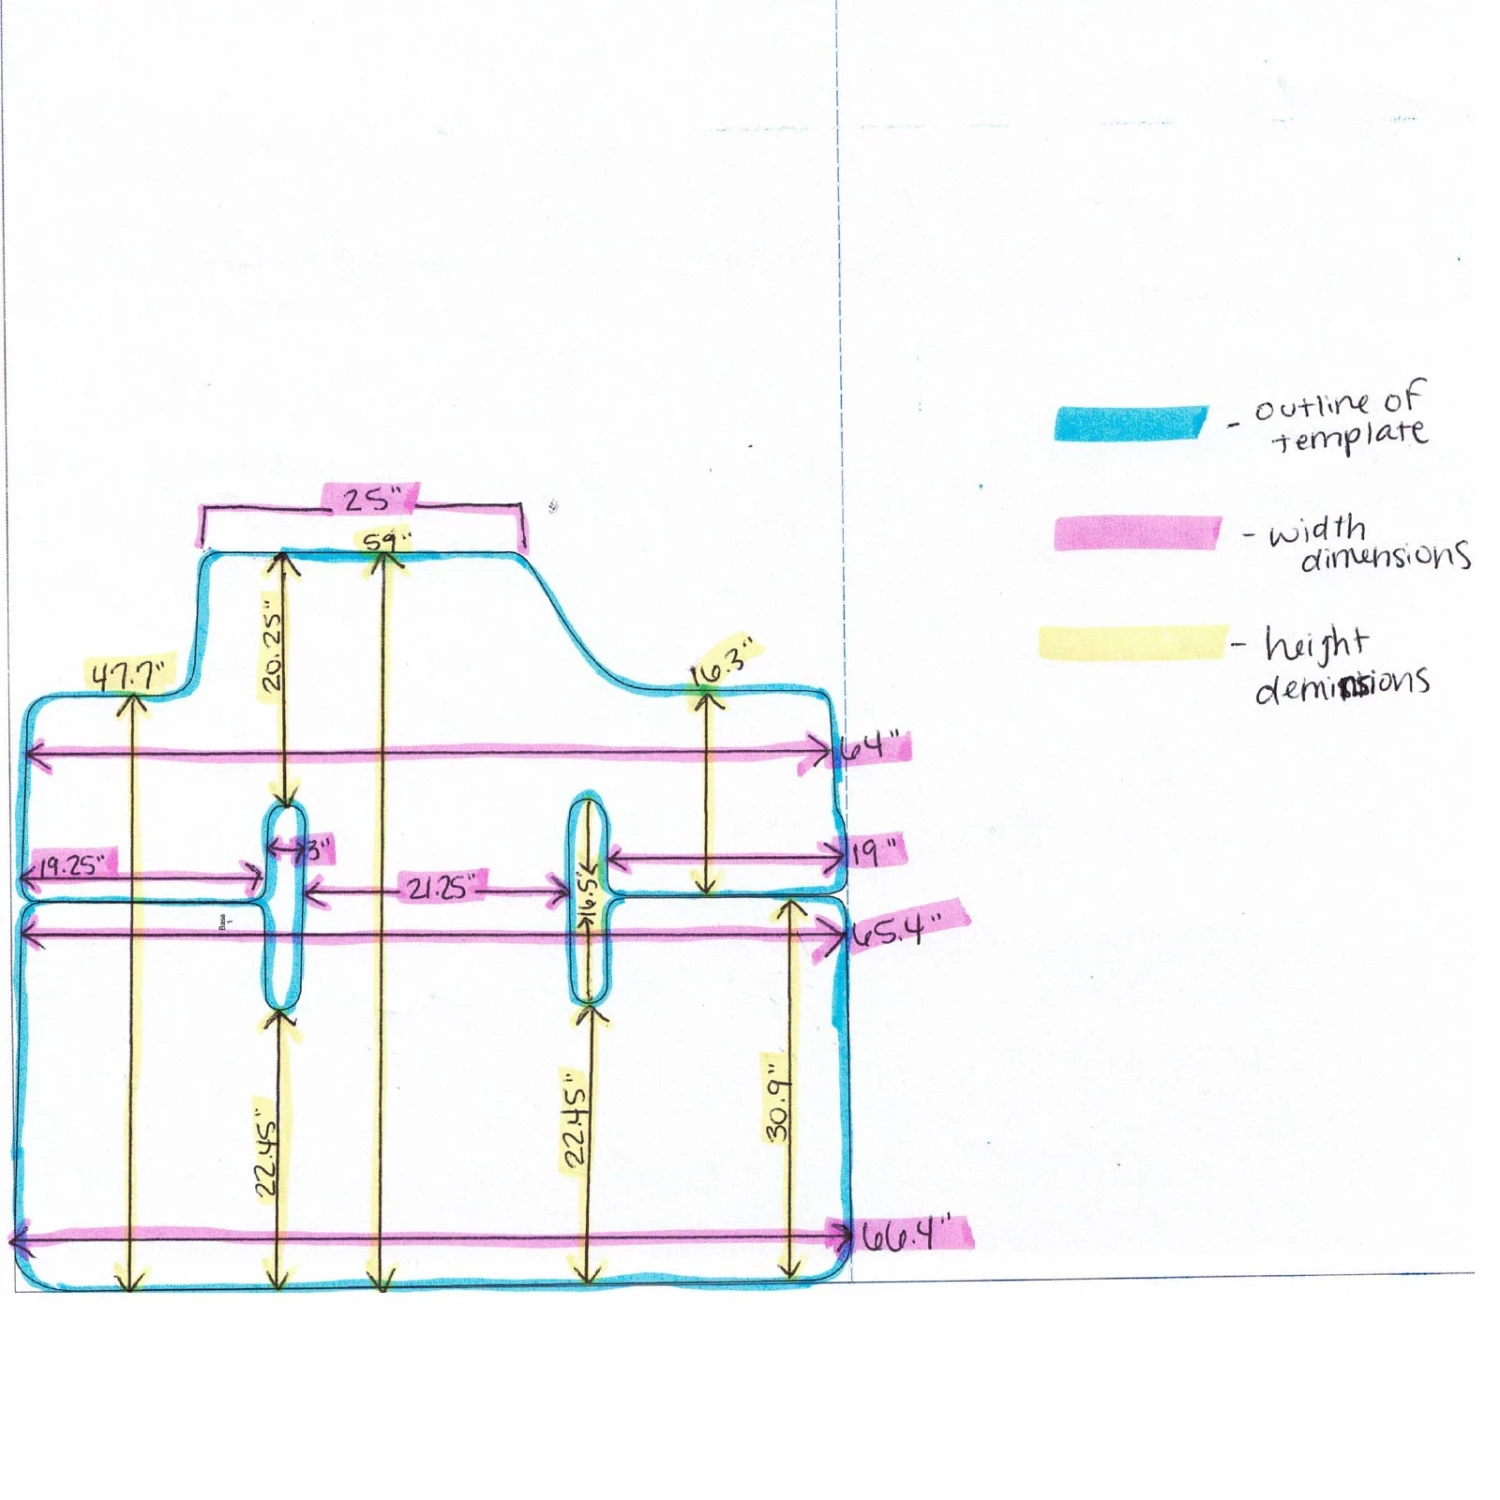 25"
59"
- outline of
template
- width
dimensions
- height
deminsions
47.7"
20.25"
16.3"
64"
19.25"
3"
21.25"
16.5"
19"
Base
1
65.4"
22.45"
22.45"
30.9"
66.4"